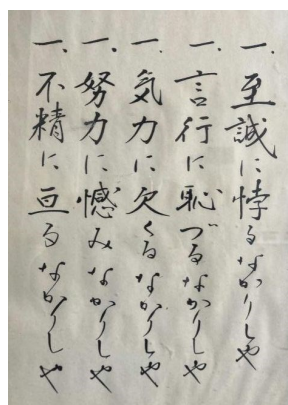 一、至誠に悖るなかりしや
一、言行に恥づるなかりしや
一、気力に欠くるなかりしや
一、努力に憾みなかりしや
一、不精に亘るなかりしや